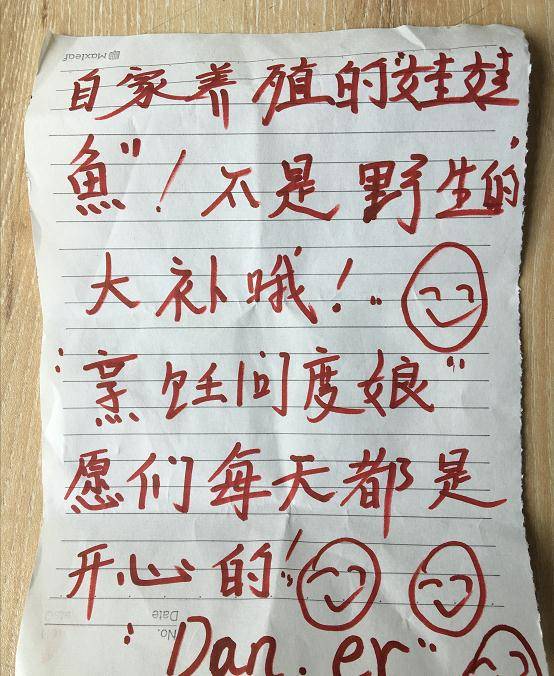 Maxleaf
自家养殖的"娃娃
魚"！不是野生的
大补哦！..
"烹饪问度娘"
愿们每天都是
开心的！
Date
No.
"Dan.er"